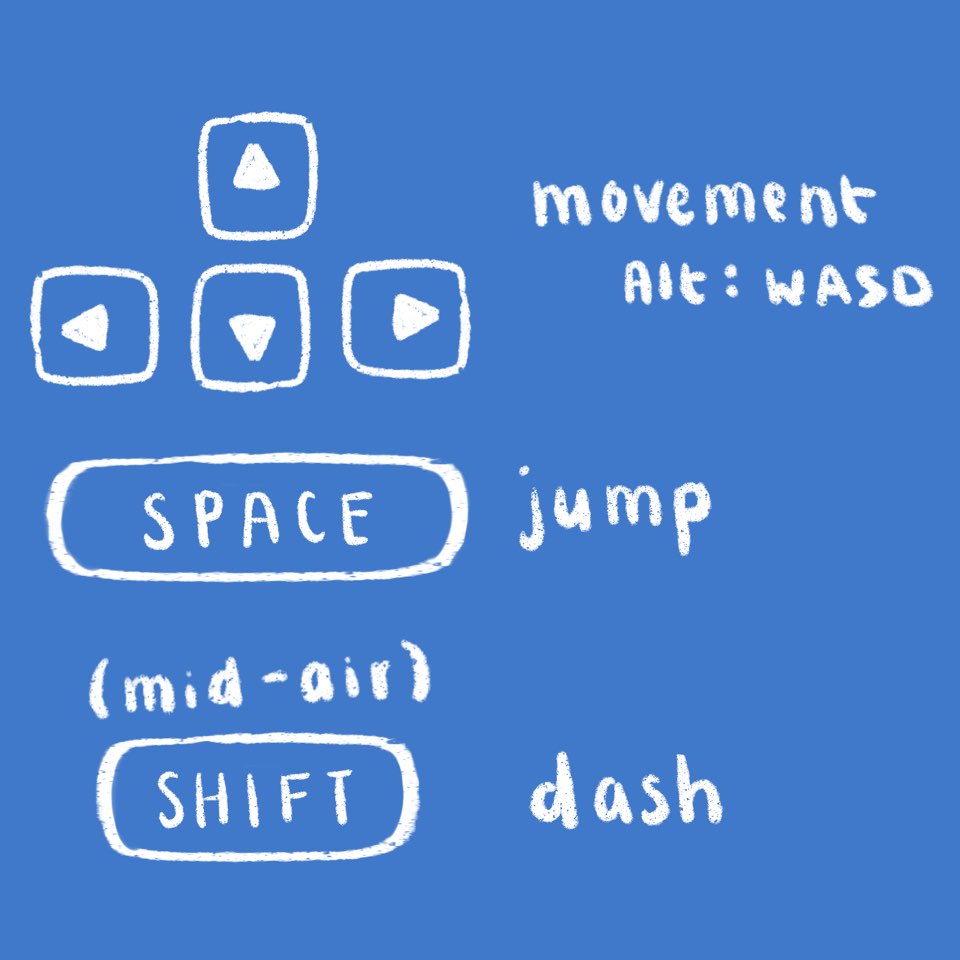 movement
Alt: WASD
SPACE jump
(mid-air)
SHIFT dash